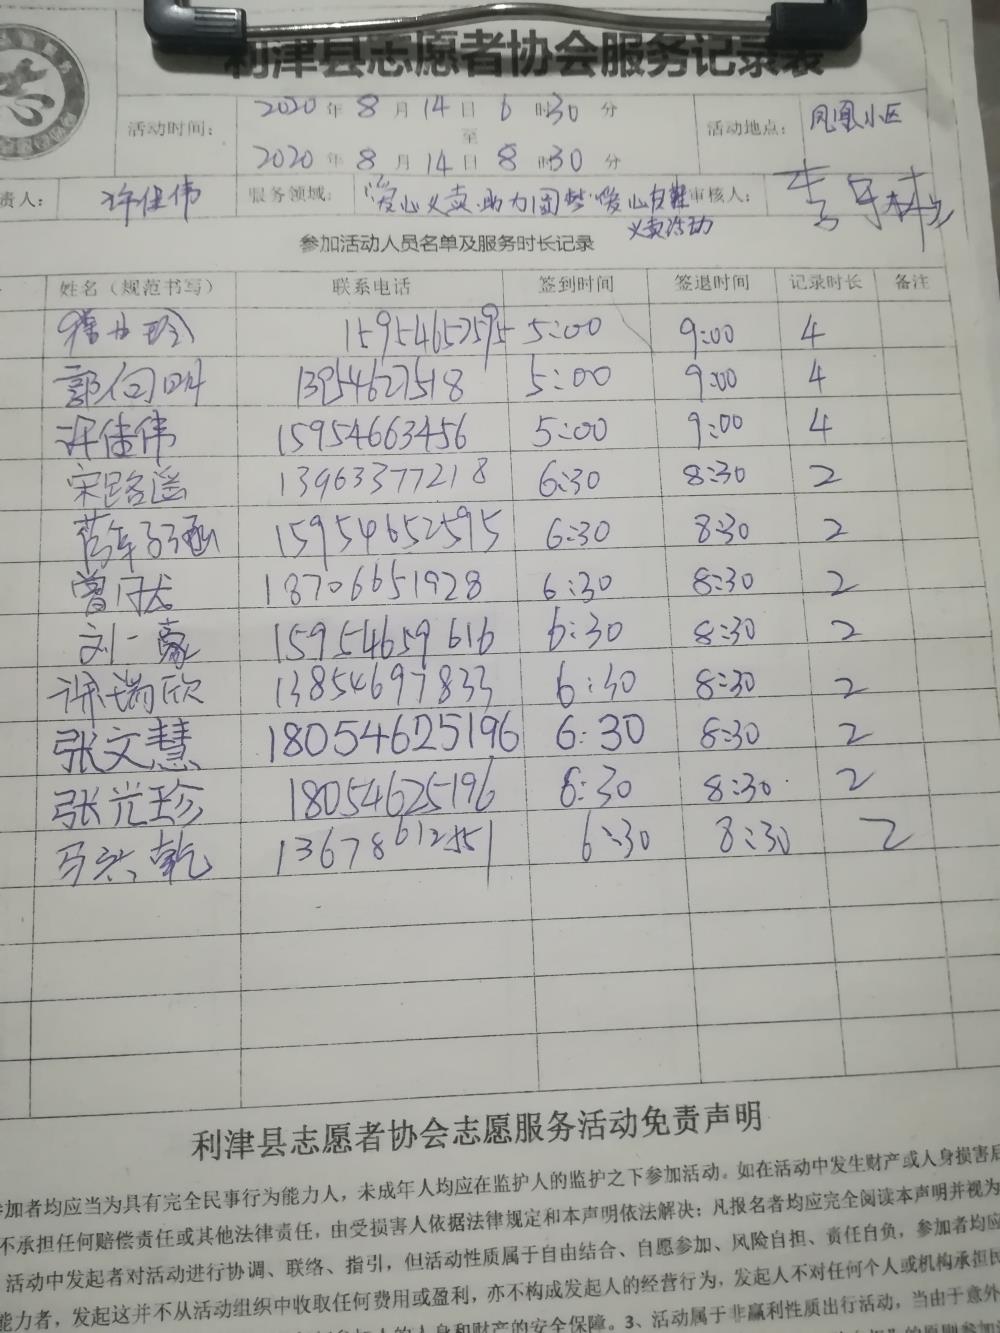 利津县志愿者协会服务记录表
活动时间: 2020年8月14日6时30分 活动地点: 凤凰小区
至
2020年8月14日8时30分
责人: 许佳伟 服务领域: 爱心义卖·助力圆梦·爱心 审核人:
义卖活动
参加活动人员名单及服务时长记录
姓名（规范书写） 联系电话 签到时间 签退时间 记录时长 备注
15954652595 5:00 9:00 4
郭向明 13954627518 5:00 9:00 4
许佳伟 15954663456 5:00 9:00 4
宋路遥 13963377218 6:30 8:30 2
15954652595 6:30 8:30 2
曾 18706651928 6:30 8:30 2
刘一豪 15954659616 6:30 8:30 2
瑞欣 13854697833 6:30 8:30 2
张文慧 18054625196 6:30 8:30 2
张光珍 18054625196 6:30 8:30 2
马兴乾 13678612551 6:30 8:30 2
利津县志愿者协会志愿服务活动免责声明
参加者均应当为具有完全民事行为能力人，未成年人均应在监护人的监护之下参加活动。如在活动中发生财产或人身损害后
不承担任何赔偿责任或其他法律责任，由受损害人依据法律规定和本声明依法解决；凡报名者均应完全阅读本声明并视为
活动中发起者对活动进行协调、联络、指引，但活动性质属于自由结合、自愿参加、风险自担、责任自负，参加者均应
能力者，发起这并不从活动组织中收取任何费用或盈利，亦不构成发起人的经营行为，发起人不对任何个人或机构承担民
人身和财产的安全保障。3、活动属于非赢利性质出行活动，当由于意外